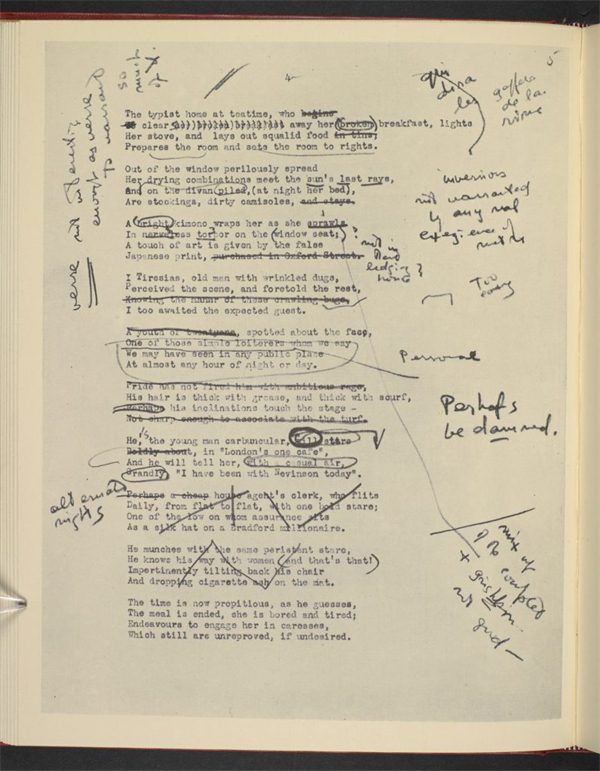 5
4
so
much
of
verse not interesting
enough as verse
to warrant
qui
dira
les
gaffers
de la
rime
The typist home at teatime, who begins
to clear away her broken breakfast, lights
Her stove, and lays out squalid food in tins,
Prepares the room and sets the room to rights.
Out of the window perilously spread
Her drying combinations meet the sun's last rays,
And on the divan piled, (at night her bed),
Are stockings, dirty camisoles, and stays.
inversions
not warranted
by any real
exegience of
metre
A bright kimono wraps her as she sprawls
In nerveless torpor on the window seat;
A touch of art is given by the false
Japanese print, purchased in Oxford Street.
?
not in
lodging
house
?
I Tiresias, old man with wrinkled dugs,
Perceived the scene, and foretold the rest,
Knowing the manner of these crawling bugs,
I too awaited the expected guest.
Too
easy
A youth of twentyone, spotted about the face,
One of those simple loiterers whom we say
We may have seen in any public place
At almost any hour of night or day.
Personal
Pride has not fired him with ambitious rage,
His hair is thick with grease, and thick with scurf,
Perhaps his inclinations touch the stage -
Not sharp enough to associate with the turf.
Perhaps
be damned.
He, the young man carbuncular, will stare
Boldly about, in "London's one cafe",
And he will tell her, with a casual air,
Grandly, "I have been with Nevinson today".
alternate
nights
Perhaps a cheap house agent's clerk, who flits
Daily, from flat to flat, with one bold stare;
One of the low on whom assurance sits
As a silk hat on a Bradford millionaire.
mix of
couplet
+
not good -
He munches with the same persistent stare,
He knows his way with women and that's that!
Impertinently tilting back his chair
And dropping cigarette ash on the mat.
The time is now propitious, as he guesses,
The meal is ended, she is bored and tired;
Endeavours to engage her in caresses,
Which still are unreproved, if undesired.